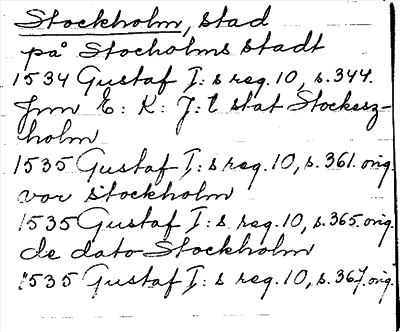 Stockholm, stad
på Stocholms Stadt
1534 Gustaf I:s reg. 10, s. 344.
Jnn E: K: J: t stat Stockesz-
holm
1535 Gustaf I:s reg. 10, s. 361. orig.
vor Stockholm
1535 Gustaf I:s reg. 10, s. 365. orig.
de dato Stockholm
1535 Gustaf I:s reg. 10, s. 367. orig.